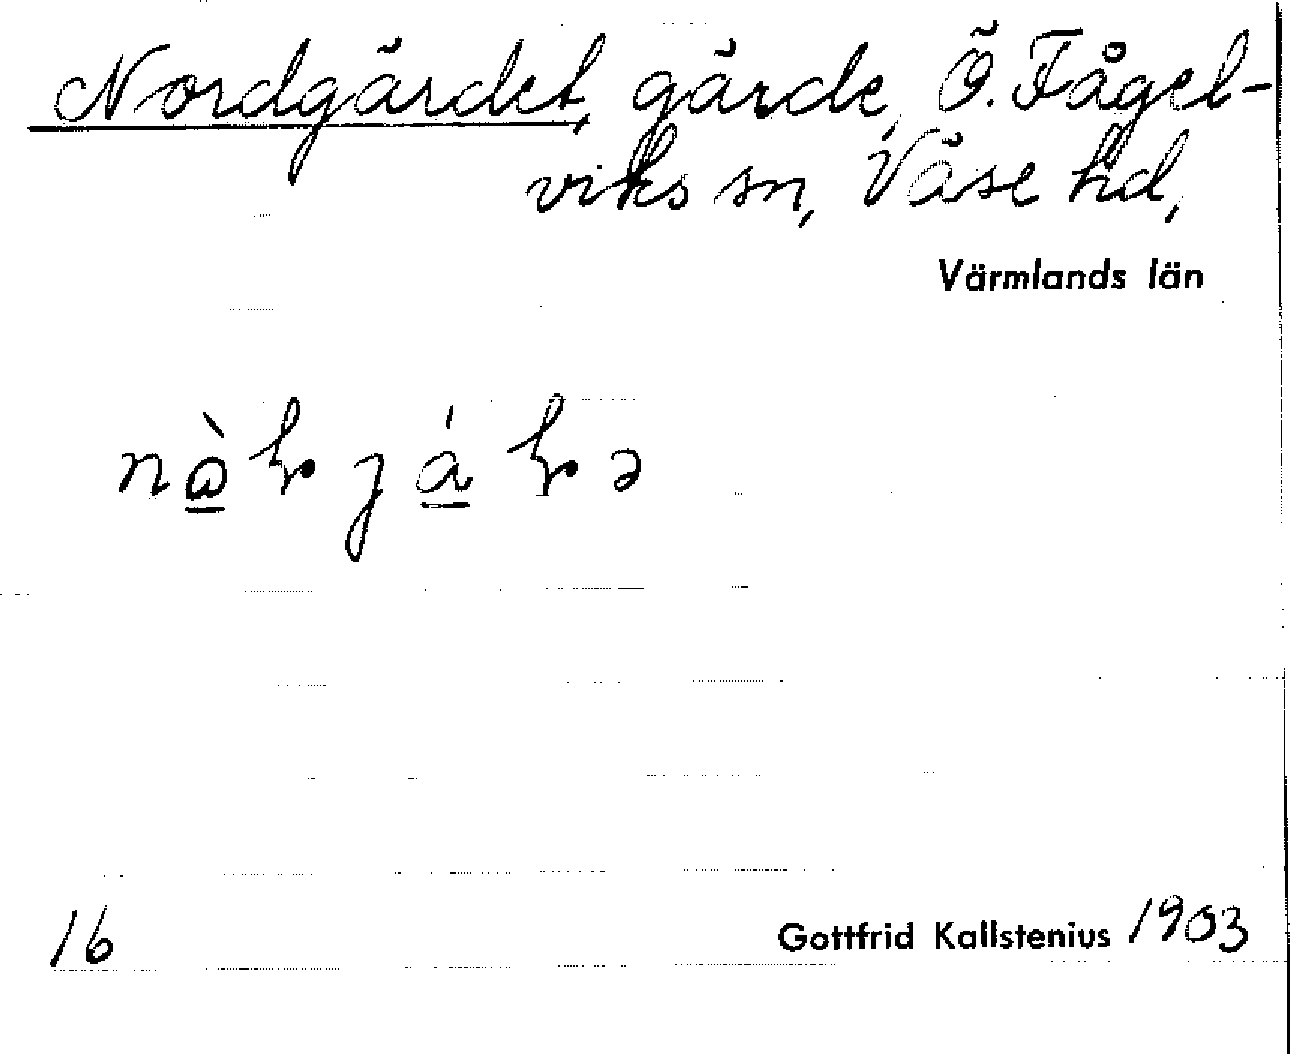 Nordgärdet, gärde, Ö. Fågel-
viks sn, Väse hd,
Värmlands län
16
Gottfrid Kallstenius 1903